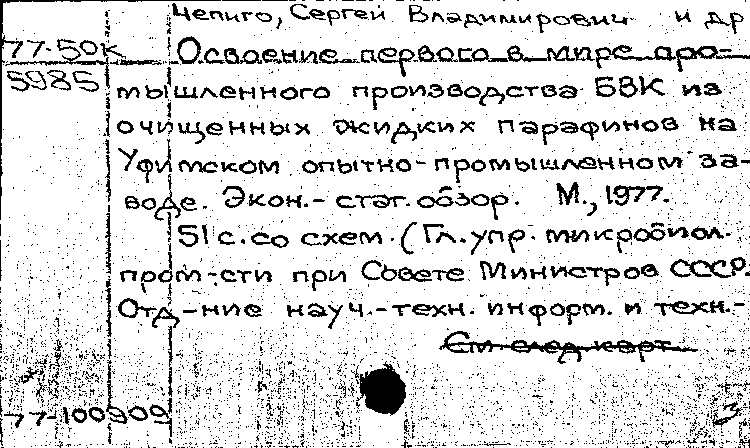 Чепиго, Сергей Владимирович и др
77-50к Освоение первого в мире про-
5985 мышленного производства БВК из
очищенных жидких парафинов на
Уфимском опытно-промышленном за-
воде. Экон.-стат. обзор. М., 1977.
51 с. со схем. (Гл. упр. микробиол.
пром-сти при Совете Министров СССР.
Отд-ние науч.-техн. информ. и техн.-
См. след. карт.
77-100909 3